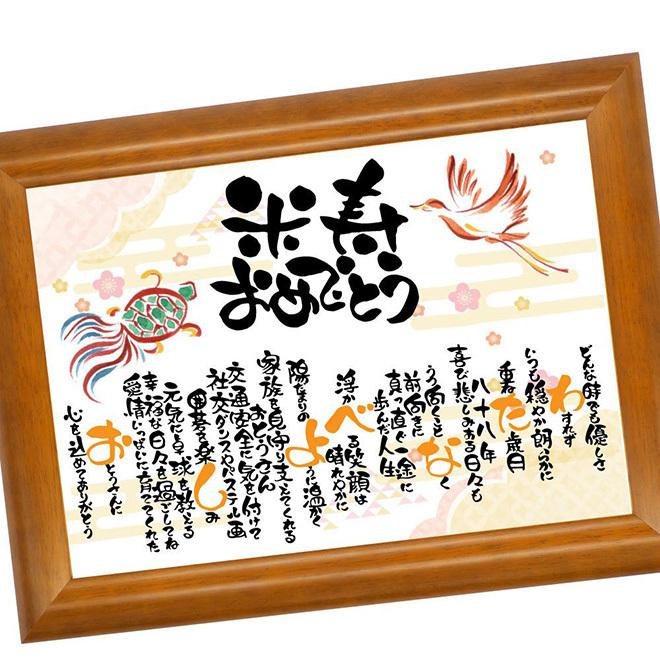 米寿
おめでとう
どんな時でも優しさ
わすれず
いつも穏やか朗らかに
重ねた歳月
八十八年
喜び悲しみある日々も
うつ向くことなく
前向きに
真っ直ぐ一途に
歩んだ人生
浮かべる笑顔は
晴れやかに
陽だまりのように温かく
家族を見守り支えてくれる
おとうさん
交通安全に気を付けて
社交ダンスやパステル画
囲碁を楽しみ
元気に卓球を教える
幸福な日々を過ごしてね
愛情いっぱいに育ててくれた
おとうさんに
心を込めてありがとう